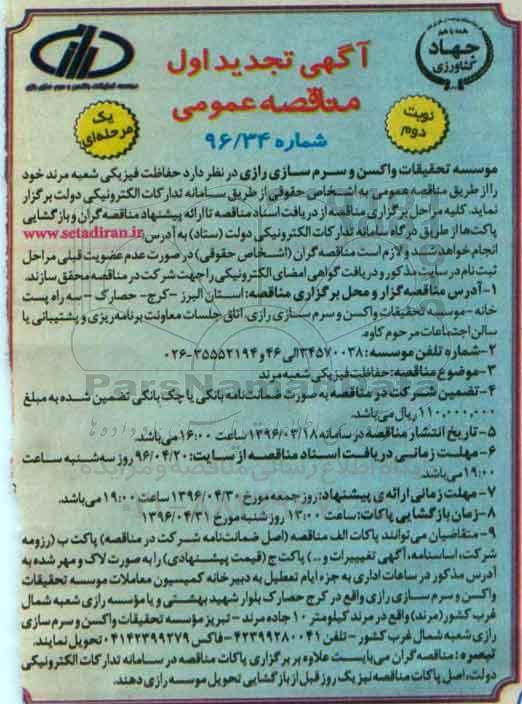 همه با هم
جهاد
کشاورزی
آگهی تجدید اول
مناقصه عمومی
شماره ۹۶/۳۴
نوبت دوم
یک مرحله‌ای
موسسه تحقیقات واکسن و سرم سازی رازی در نظر دارد حفاظت فیزیکی شعبه مرند خود
را از طریق مناقصه عمومی به اشخاص حقوقی از طریق سامانه تدارکات الکترونیکی دولت برگزار
نماید. کلیه مراحل برگزاری مناقصه از دریافت اسناد مناقصه تا ارائه پیشنهاد مناقصه گران و بازگشایی
پاکت‌ها از طریق درگاه سامانه تدارکات الکترونیکی دولت (ستاد) به آدرس: www.setadiran.ir
انجام خواهد شد و لازم است مناقصه گران (اشخاص حقوقی) در صورت عدم عضویت قبلی مراحل
ثبت نام در سایت مذکور و دریافت گواهی امضای الکترونیکی را جهت شرکت در مناقصه محقق سازند.
۱-آدرس مناقصه گزار و محل برگزاری مناقصه: استان البرز -کرج- حصارک - سه راه پست
خانه -موسسه تحقیقات واکسن و سرم سازی رازی، اتاق جلسات معاونت برنامه ریزی و پشتیبانی یا
سالن اجتماعات مرحوم کاوه.
۲-شماره تلفن موسسه: ۳۴۵۷۰۰۳۸ الی ۴۶ و ۳۵۵۵۲۱۹۴-۰۲۶
۳-موضوع مناقصه: حفاظت فیزیکی شعبه مرند
۴-تضمین شرکت در مناقصه به صورت ضمانت نامه بانکی یا چک بانکی تضمین شده به مبلغ
۱۱۰,۰۰۰,۰۰۰ ریال می‌باشد.
۵- تاریخ انتشار مناقصه در سامانه ۱۳۹۶/۰۳/۱۸ ساعت ۱۶:۰۰ می‌باشد.
۶- مهلت زمانی دریافت اسناد مناقصه از سایت: ۹۶/۰۴/۲۰ روز سه‌شنبه ساعت
۱۹:۰۰ می‌باشد.
۷- مهلت زمانی ارائه‌ی پیشنهاد: روز جمعه مورخ ۱۳۹۶/۰۴/۳۰ ساعت ۱۹:۰۰ می‌باشد.
۸-زمان بازگشایی پاکات: ساعت ۱۳:۰۰ روز شنبه مورخ ۱۳۹۶/۰۴/۳۱
۹- متقاضیان می توانند پاکات الف مناقصه (اصل ضمانت نامه شرکت در مناقصه) پاکت ب (رزومه
شرکت، اساسنامه، آگهی تغییرات و...) پاکت ج (قیمت پیشنهادی) را به صورت لاک و مهر شده به
آدرس مذکور در ساعات اداری به جزء ایام تعطیل به دبیرخانه کمیسیون معاملات موسسه تحقیقات
واکسن و سرم سازی رازی واقع در کرج حصارک بلوار شهید بهشتی و یا مؤسسه رازی شعبه شمال
غرب کشور (مرند) واقع در مرند کیلومتر ۱۰ جاده مرند - تبریز مؤسسه تحقیقات واکسن و سرم سازی
رازی شعبه شمال غرب کشور - تلفن ۴۲۳۹۹۲۸۰۰۴۱ -فاکس ۰۴۱۴۲۳۹۹۲۷۹ تحویل نمایند.
تبصره: مناقصه گران می‌بایست علاوه بر برگزاری پاکات مناقصه در سامانه تدارکات الکترونیکی
دولت، اصل پاکات مناقصه نیز یک روز قبل از بازگشایی تحویل موسسه رازی دهند.
ParsNamadData